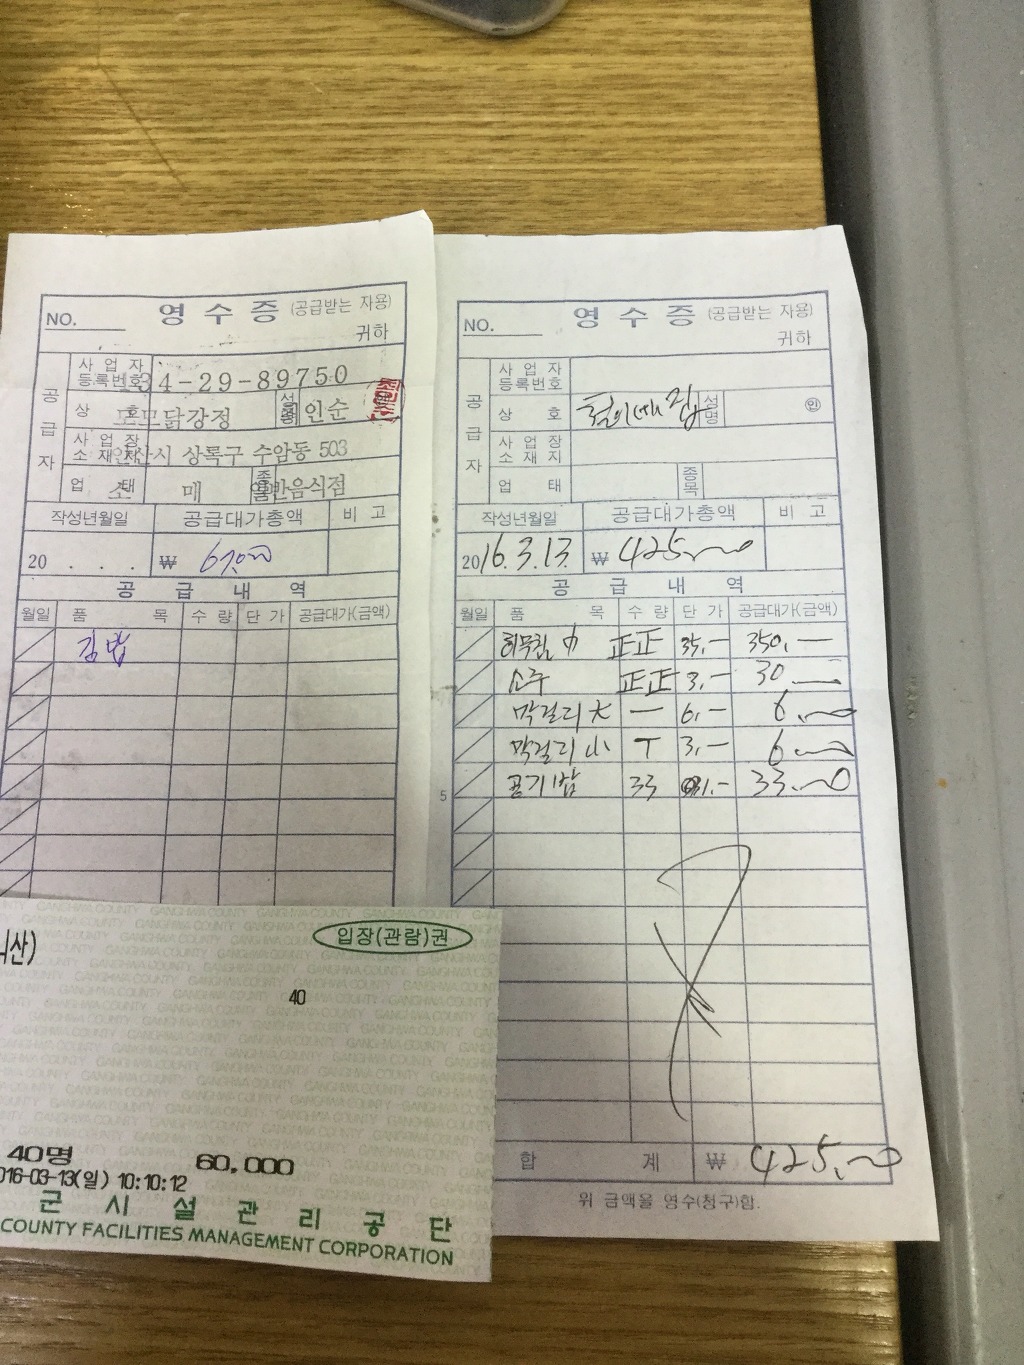 NO.
영 수 증 (공급받는 자용)
귀하
공급자
사업자등록번호
34-29-89750
상 호
모모닭강정
성명
인순
사업장소재지
안산시 상록구 수암동 503
업 태
소 매
종목
일반음식점
작성년월일 공급대가총액 비 고
20 . . . ₩
공 급 내 역
월일 품 목 수 량 단 가 공급대가(금액)
김밥
NO.
영 수 증 (공급받는 자용)
귀하
공급자
사업자등록번호
상 호
성명
인
사업장소재지
업 태
종목
작성년월일 공급대가총액 비 고
2016.3.13. ₩ 425,000
공 급 내 역
월일 품 목 수 량 단 가 공급대가(금액)
회무침 中 正正 35,- 350,-
소주 正正 3,- 30
막걸리 大 一 6,- 6,000
막걸리 小 T 3,- 6,000
5
공기밥 33 1,- 33,000
합 계 ₩ 425,000
위 금액을 영수(청구)함.
니산)
입장(관람)권
40
40명 60,000
016-03-13(일) 10:10:12
군 시 설 관 리 공 단
COUNTY FACILITIES MANAGEMENT CORPORATION